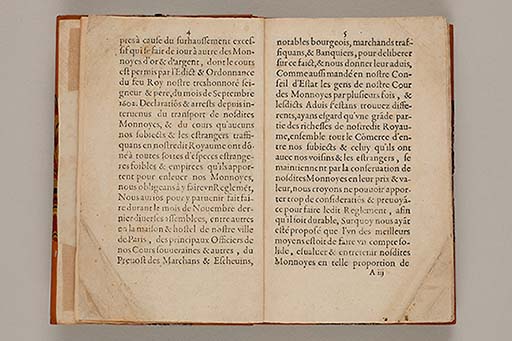 4
pres à cause du surhaussement exces-
sif qui se fait de iour à autre des Mon-
noyes d'or & d'argent, dont le cours
est permis par l'Edict & Ordonnance
du feu Roy nostre treshonnoré sei-
gneur & pere, du mois de Septembre
1602. Declaratiõs & arrests depuis in-
teruenus du transport de nosdites
Monnoyes, & du cours qu'aucuns
nos subiects & les estrangers traffi-
quans en nostredit Royaume ont dõ-
né à toutes sortes d'especes estrange-
res foibles & empirees qu'ils appor-
tent pour enleuer nos Monnoyes,
nous obligeans à y faire vn Reglemẽt,
Nous aurions pour y paruenir fait fai-
re durant le mois de Nouembre der-
nier diuerses assemblees, entre autres
en la maison & hostel de nostre ville
de Paris, des principaux Officiers de
nos Cours souueraines & autres, du
Preuost des Marchans & Escheuins,
5
notables bourgeois, marchands traf-
fiquans, & Banquiers, pour deliberer
sur ce faict, & nous donner leur aduis,
Comme aussi mandé en nostre Con-
seil d'Estat les gens de nostre Cour
des Monnoyes par plusieurs fois, &
lesdicts Aduis s'estans trouuez diffe-
rents, ayans esgard qu'vne grãde par-
tie des richesses de nosredit Royau-
me, ensemble tout le Cõmerce d'en-
tre nos subiects & celuy qu'ils ont
auec nos voisins & les estrangers, se
maintiennent par la conseruation de
nosdites Monnoyes en leur prix & va-
leur, nous croyons ne pouuoir appor-
ter trop de consideratiõs & preuoyã-
ce pour faire ledit Reglement, afin
qu'il soit durable, Surquoy nous ayãt
esté proposé que l'vn des meilleurs
moyens estoit de faire vn compte so-
lide, esualuer & entretenir nosdites
Monnoyes en telle proportion de
A iij